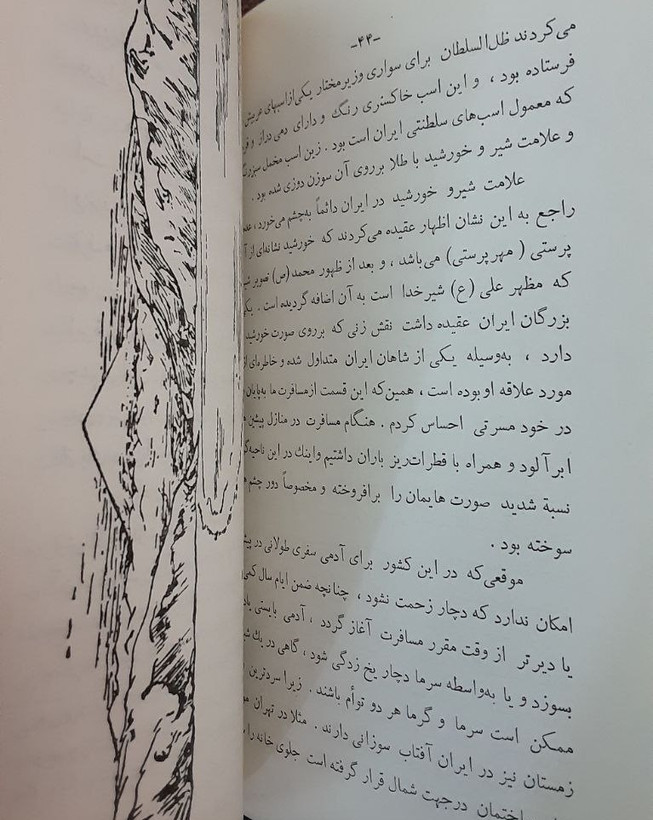 -۴۴-
می‌کردند ظل‌السلطان برای سواری وزیرمختار یکی از اسبهای عربیش
فرستاده بود ، و این اسب خاکستری رنگ و دارای دمی دراز و
که معمول اسب‌های سلطنتی ایران است بود . زین اسب مخمل سبز
و علامت شیر و خورشید با طلا برروی آن سوزن دوزی شده بود .
علامت شیرو خورشید در ایران دائماً به‌چشم می‌خورد ،
راجع به این نشان اظهار عقیده می‌کردند که خورشید نشانه‌ای از
پرستی ( مهرپرستی) می‌باشد ، و بعد از ظهور محمد (ص) تصویر
که مظهر علی (ع) شیرخدا است به آن اضافه گردیده است .
بزرگان ایران عقیده داشت نقش زنی که برروی صورت خورشید
دارد ، به‌وسیله یکی از شاهان ایران متداول شده و خاطره‌ای
مورد علاقه او بوده است ، همین‌که این قسمت از مسافرت ما به‌پایان
در خود مسرتی احساس کردم . هنگام مسافرت در منازل پیشین
ابرآلود و همراه با قطرات‌ریز باران داشتیم واینك در این
نسبة شدید صورت هایمان را برافروخته و مخصوصاً دور چشم
سوخته بود .
موقعی‌که در این کشور برای آدمی سفری طولانی در
امکان ندارد که دچار زحمت نشود ، چنانچه ضمن ایام سال
یا دیرتر از وقت مقرر مسافرت آغاز گردد ، آدمی بایستی
بسوزد و یا به‌واسطه سرما دچار یخ زدگی شود ، گاهی در یك
ممکن است سرما و گرما هر دو توأم باشند . زیرا سردترین
زمستان نیز در ایران آفتاب سوزانی دارند . مثلا در تهران
ساختمان درجهت شمال قرار گرفته است جلوی خانه را